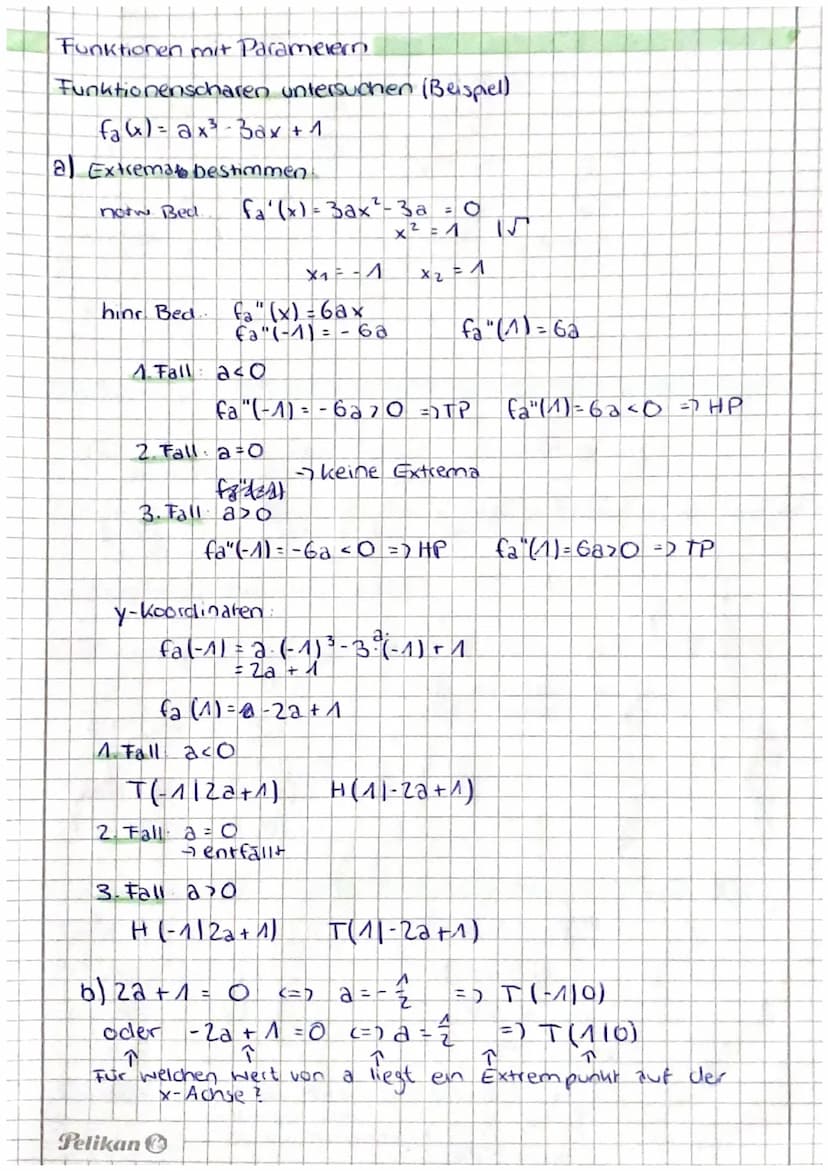 Funktionen mit Parametern
Funktionenscharen untersuchen (Beispiel)
fa(x) = ax³ - 3ax + 1
a) Extrema bestimmen:
notw. Bed. fa'(x) = 3ax² - 3a = 0
x² = 1 |√
x₁ = -1 x₂ = 1
hinr. Bed. fa"(x) = 6ax
fa"(-1) = -6a fa"(1) = 6a
1. Fall: a<0
fa"(-1) = -6a > 0 => TP fa"(1) = 6a < 0 => HP
2. Fall: a=0
-> keine Extrema
3. Fall: a>0
fa"(-1) = -6a < 0 => HP fa"(1) = 6a > 0 => TP
y-Koordinaten:
fa(-1) = a·(-1)³ - 3·a·(-1) + 1
= 2a + 1
fa(1) = -2a + 1
1. Fall: a<0
T(-1|2a+1) H(1|-2a+1)
2. Fall: a = 0
→ entfällt
3. Fall: a>0
H(-1|2a+1) T(1|-2a+1)
b) 2a + 1 = 0 <=> a = -1/2 => T(-1|0)
oder -2a + 1 = 0 <=> a = 1/2 => T(1|0)
↑ ↑ ↑ ↑ ↑
Für welchen Wert von a liegt ein Extrempunkt auf der
x-Achse?
Pelikan